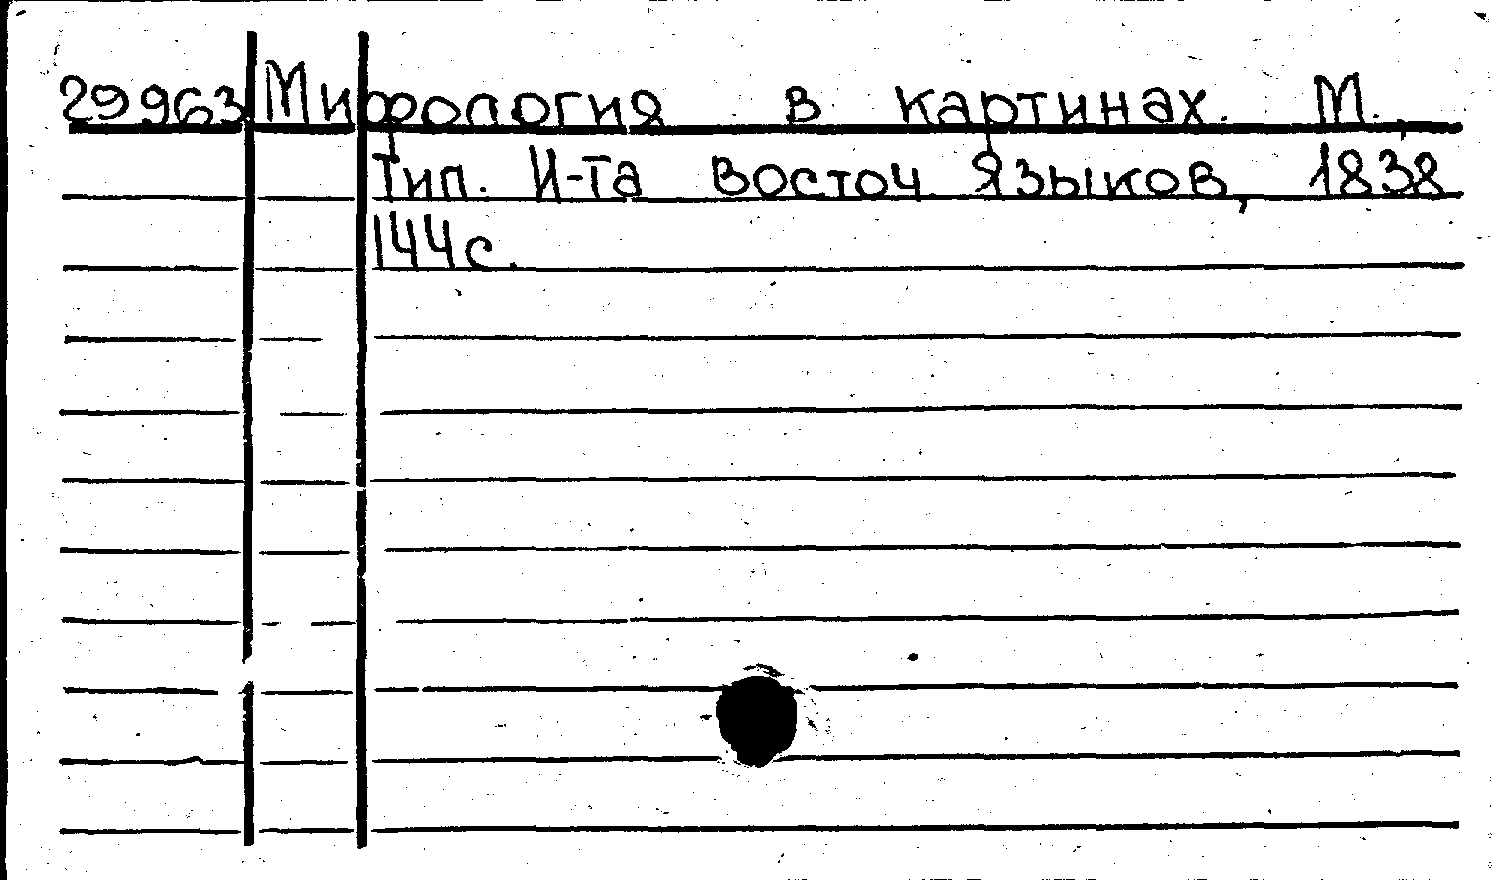 29963 Мифология в картинах. М.,
Тип. И-та Восточ. Языков, 1838
144с.